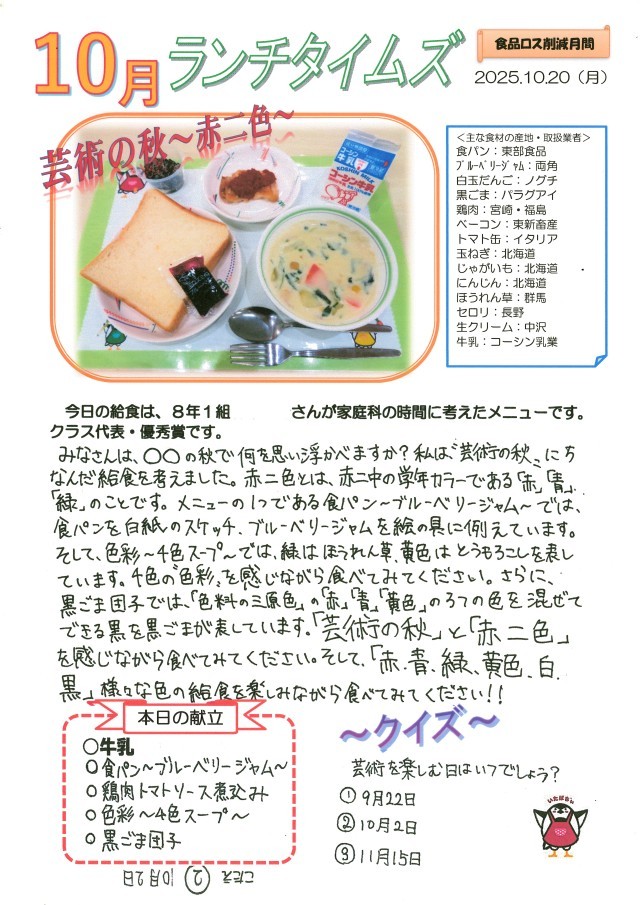 10月 ランチタイムズ
食品ロス削減月間
2025.10.20（月）
芸術の秋～赤二色～
＜主な食材の産地・取扱業者＞
食パン：東部食品
ﾌﾞﾙｰﾍﾞﾘｰｼﾞｬﾑ：両角
白玉だんご：ノグチ
黒ごま：パラグアイ
鶏肉：宮崎・福島
ベーコン：東新畜産
トマト缶：イタリア
玉ねぎ：北海道
じゃがいも：北海道
にんじん：北海道
ほうれん草：群馬
セロリ：長野
生クリーム：中沢
牛乳：コーシン乳業
コーシン牛乳
今日の給食は、８年１組　　　　さんが家庭科の時間に考えたメニューです。
クラス代表・優秀賞です。
みなさんは、〇〇の秋で何を思い浮かべますか？私は“芸術の秋”にち
なんだ給食を考えました。赤二色とは、赤二中の学年カラーである「赤」「青」
「緑」のことです。メニューの1つである食パン～ブルーベリージャム～では、
食パンを白紙のスケッチ、ブルーベリージャムを絵の具に例えています。
そして、色彩～4色スープ～では、緑はほうれん草、黄色はとうもろこしを表し
ています。4色の“色彩”を感じながら食べてみてください。さらに、
黒ごま団子では、「色料の三原色」の「赤」「青」「黄色」の3つの色を混ぜて
できる黒を黒ごまが表しています。「芸術の秋」と「赤二色」
を感じながら食べてみてください。そして、「赤、青、緑、黄色、白、
黒」様々な色の給食を楽しみながら食べてみてください!!
本日の献立
〇牛乳
〇食パン～ブルーベリージャム～
〇鶏肉トマトソース煮込み
〇色彩～4色スープ～
〇黒ごま団子
～クイズ～
芸術を楽しむ日はいつでしょう？
①9月22日
②10月2日
③11月15日
こたえ ② 10月2日